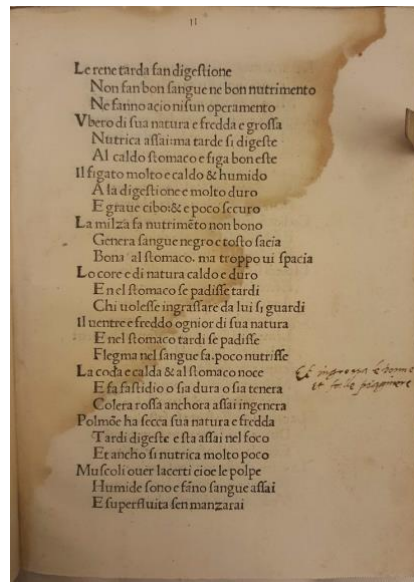 11
Le rene tarda fan digeſtione
Non fan bon ſangue ne bon nutrimento
Ne fanno acio niſun operamento
Vbero di ſua natura e fredda e groſſa
Nutrica aſſai:ma tarde ſi digeſte
Al caldo ſtomaco e figa bon eſte
Il figato molto e caldo & humido
A la digeſtione e molto duro
E graue cibo:& e poco ſecuro
La milza fa nutrimēto non bono
Genera ſangue negro e toſto ſacia
Bona al ſtomaco. ma troppo ui ſpacia
Lo core e di natura caldo e duro
E nel ſtomaco ſe padiſſe tardi
Chi uoleſſe ingraſſare da lui ſi guardi
Il uentre e freddo ognior di ſua natura
E nel ſtomaco tardi ſe padiſſe
Flegma nel ſangue fa. poco nutriſſe
La coda e calda & al ſtomaco noce
E fa faſtidio o ſia dura o ſia tenera
Colera roſſa anchora aſſai ingenera
Polmōe ha ſecca ſua natura e fredda
Tardi digeſte e ſta aſſai nel foco
Et ancho ſi nutrica molto poco
Muſcoli ouer lacerti cioe le polpe
Humide ſono e fāno ſangue aſſai
E ſuperfluita ſen manzarai